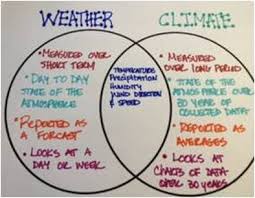 WEATHER
CLIMATE
• MEASURED OVER
SHORT TERM
• DAY TO DAY
STATE OF THE
ATMOSPHERE
• REPORTED AS
A FORCAST
• LOOKS AT A
DAY OR WEEK
TEMPERATURE
PRECIPITATION
HUMIDITY
WIND DIRECTION
& SPEED
• MEASURED
OVER LONG PERIOD
• STATE OF THE
ATMOSPHERE OVER
30 YEAR OF
COLLECTED DATA
• REPORTED AS
AVERAGES
• LOOKS AT
CHARTS OF DATA
OVER 30 YEARS